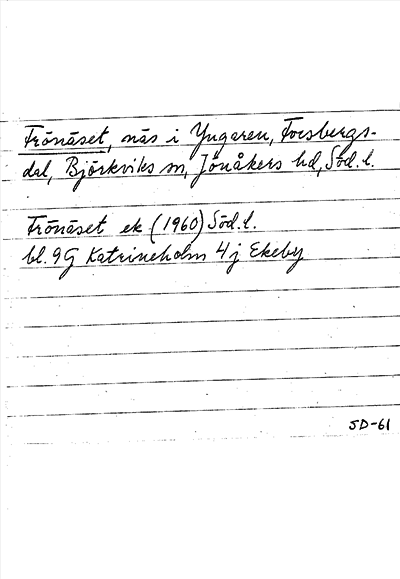 Frönäset, näs i Yngaren, Forsbergs-
dal, Björkviks sn, Jönåkers hd, Söd. l.
Frönäset ek (1960) Söd. l.
bl. 9G Katrineholm 4j Ekeby
SD-61